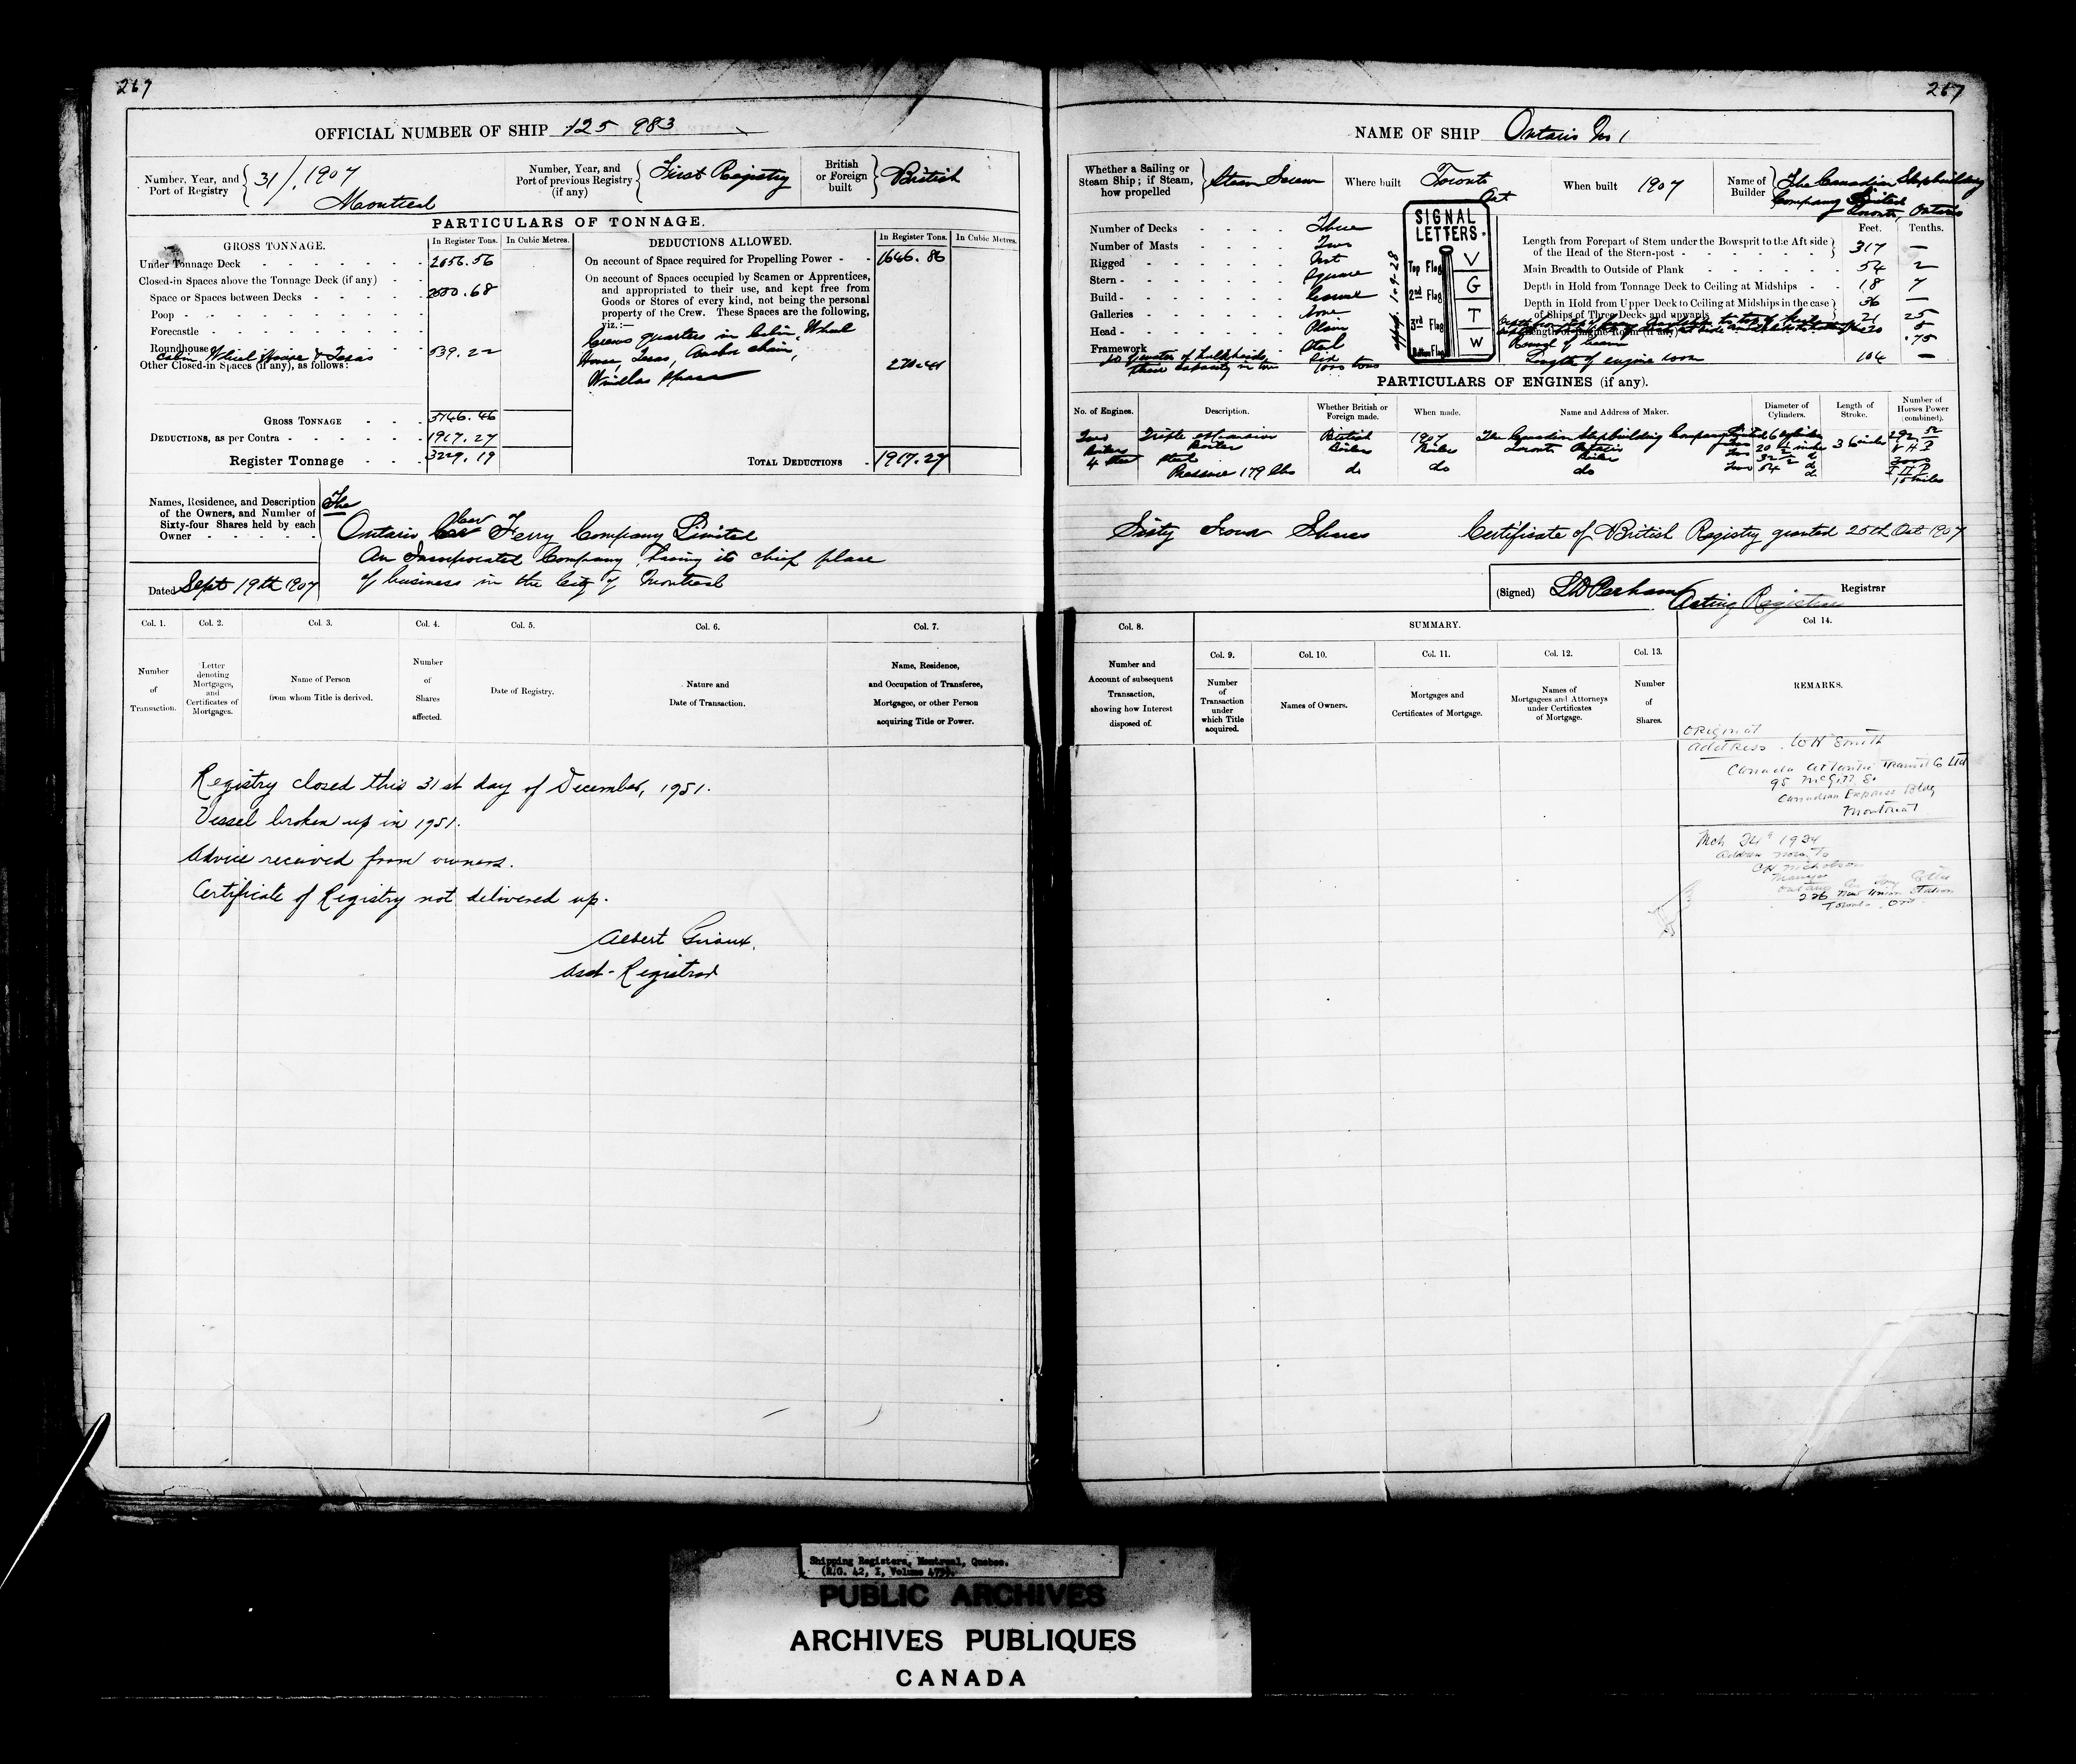 267
OFFICIAL NUMBER OF SHIP 125 983
Number, Year, and Port of Registry 31/1907 Montreal
Number, Year, and Port of previous Registry (if any) First Registry
British or Foreign built British
PARTICULARS OF TONNAGE.
GROSS TONNAGE. In Register Tons. In Cubic Metres.
Under Tonnage Deck 2656.56
Closed-in Spaces above the Tonnage Deck (if any)
Space or Spaces between Decks .68
Poop
Forecastle
Roundhouse
Cabin, Wheel House & Texas 539.22
Other Closed-in Spaces (if any), as follows:
GROSS TONNAGE
DEDUCTIONS, as per Contra 1917.27
Register Tonnage 3229.19
DEDUCTIONS ALLOWED. In Register Tons. In Cubic Metres.
On account of Space required for Propelling Power 1646.86
On account of Spaces occupied by Seamen or Apprentices,
and appropriated to their use, and kept free from
Goods or Stores of every kind, not being the personal
property of the Crew. These Spaces are the following,
viz.:—
Crews quarters in Cabin, Wheel
House, Texas, Anchor chain,
Windlas space 270.41
TOTAL DEDUCTIONS 1917.27
Names, Residence, and Description
of the Owners, and Number of
Sixty-four Shares held by each
Owner
The
Ontario Car Ferry Company Limited
An Incorporated Company having its chief place
of business in the City of Montreal
Dated Sept 19th 1907
Col. 1. Col. 2. Col. 3. Col. 4. Col. 5. Col. 6. Col. 7.
Number of Transaction.
Letter denoting Mortgages, and Certificates of Mortgages.
Name of Person from whom Title is derived.
Number of Shares affected.
Date of Registry.
Nature and Date of Transaction.
Name, Residence, and Occupation of Transferee, Mortgagee, or other Person acquiring Title or Power.
Registry closed this 31st day of December, 1951.
Vessel broken up in 1951.
Advice received from owners.
Certificate of Registry not delivered up.
Albert Giroux.
Asst-Registrar
267
NAME OF SHIP Ontario No 1
Whether a Sailing or Steam Ship; if Steam, how propelled Steam Screw
Where built Toronto Ont
When built 1907
Name of Builder The Canadian Shipbuilding Company Limited Toronto, Ontario
Number of Decks Three
Number of Masts Two
Rigged Not
Stern Square
Build
Galleries None
Head Plain
Framework Steel
Number of bulkheads Six
their capacity in tons
SIGNAL LETTERS.
Top Flag V
2nd Flag G
3rd Flag T
Bottom Flag W
Feet. Tenths.
Length from Forepart of Stem under the Bowsprit to the Aft side of the Head of the Stern-post 317 —
Main Breadth to Outside of Plank 54 2
Depth in Hold from Tonnage Deck to Ceiling at Midships 18 7
Depth in Hold from Upper Deck to Ceiling at Midships in the case of Three Decks and upwards 36 —
Round of beam .75
Length of engine room 104 —
PARTICULARS OF ENGINES (if any).
No. of Engines. Description. Whether British or Foreign made. When made. Name and Address of Maker. Diameter of Cylinders. Length of Stroke. Number of Horses Power (combined).
Two Triple expansion British 1907 The Canadian Shipbuilding Company Limited
Boilers Boiler Boiler Boiler Toronto Ontario
Steel Boiler
Pressure 179 lbs do do do
Sixty Four Shares Certificate of British Registry granted 25th Oct 1907
(Signed) Acting Registrar Registrar
Col. 8. SUMMARY. Col 14.
Col. 9. Col. 10. Col. 11. Col. 12. Col. 13.
Number and Account of subsequent Transaction, showing how Interest disposed of.
Number of Transaction under which Title acquired.
Names of Owners.
Mortgages and Certificates of Mortgage.
Names of Mortgagees and Attorneys under Certificates of Mortgage.
Number of Shares.
REMARKS.
Original
address. W H Smith
Canada Atlantic Transit Co Ltd
95 McGill St
Canadian Express Bldg
Montreal
Mch 24 1934
address now to
Nicholson
Manager
226 New Union Station
Toronto. Ont.
Shipping Registers, Montreal, Quebec.
(R.G. 42, I, Volume 475).
PUBLIC ARCHIVES
ARCHIVES PUBLIQUES
CANADA